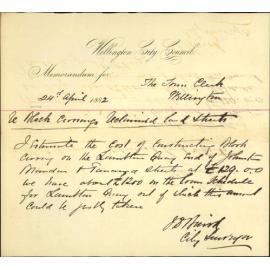 Wellington City Council.
Memorandum for
The Town Clerk
24th April 1882 Wellington
Re Block Crossings Reclaimed land Streets
I estimate the cost of constructing Block
Crossing on the Lambton Quay end of Johnston
& Panama Streets at £120.0.0
we have about £1200 on the loan Schedule
for Lambton Quay out of which this amount
could be justly taken
City Surveyor